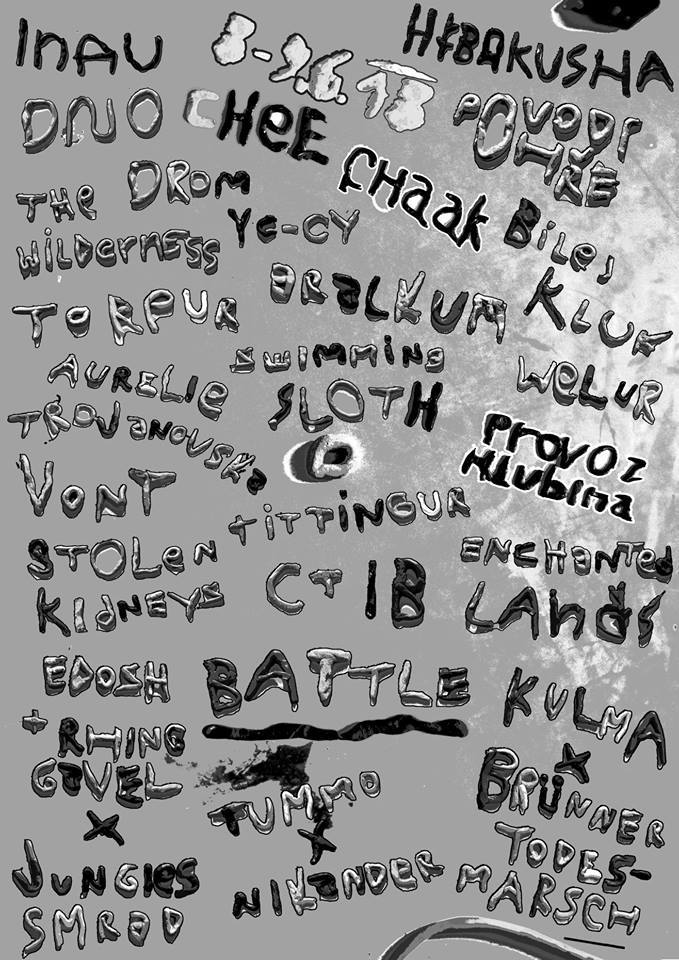 INAU
8-9.6.18
HIBAKUSHA
DNO
CHEE
POVODÍ
OHŘE
THE
WILDERNESS
DROM
YC-CY
CHAAK
BILEJ
KLUK
TORPUR
ARALKUM
AURELIE
TROJANOVSKA
SWIMMING
SLOTH
WELUR
PROVOZ
HLUBINA
VONT
TITTINGUR
STOLEN
KIDNEYS
CTIB
ENCHANTED
LANDS
EDOSH
BATTLE
+ RHING
GAVEL
X
JUNGLES
SMRAD
TUMMO
X
NIKANDER
KULMA
X
BRÜNNER
TODES-
MARSCH